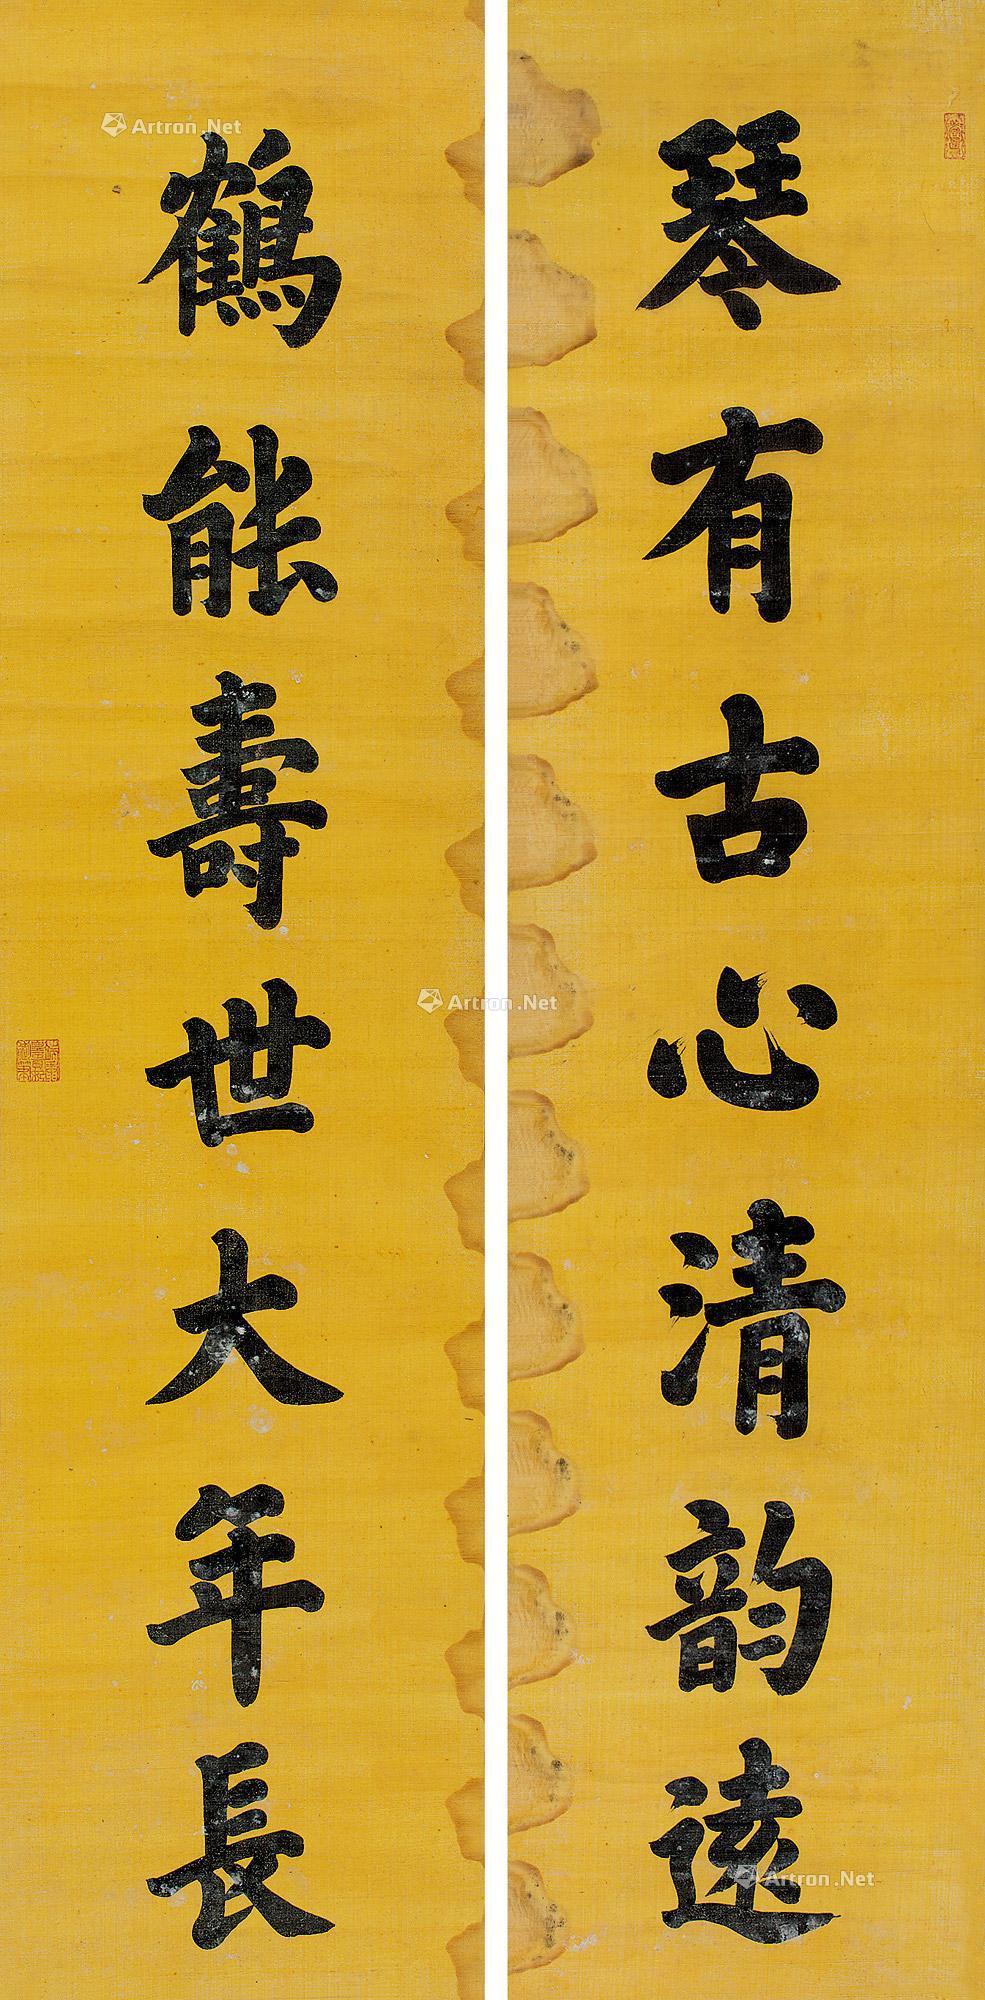 琴有古心清韵遠
鶴能壽世大年長
Artron.Net
Artron.Net
Artron.Net